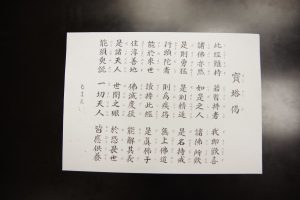 寶塔偈
此經難持 若暫持者 我即歡喜
諸佛亦然 如是之人 諸佛所歎
是則勇猛 是則精進 是名持戒
行頭陀者 則為疾得 無上佛道
能於來世 讀持此經 是真佛子
住淳善地 佛滅度後 能解其義
是諸天人 世間之眼 於恐畏世
能須臾說 一切天人 皆應供養